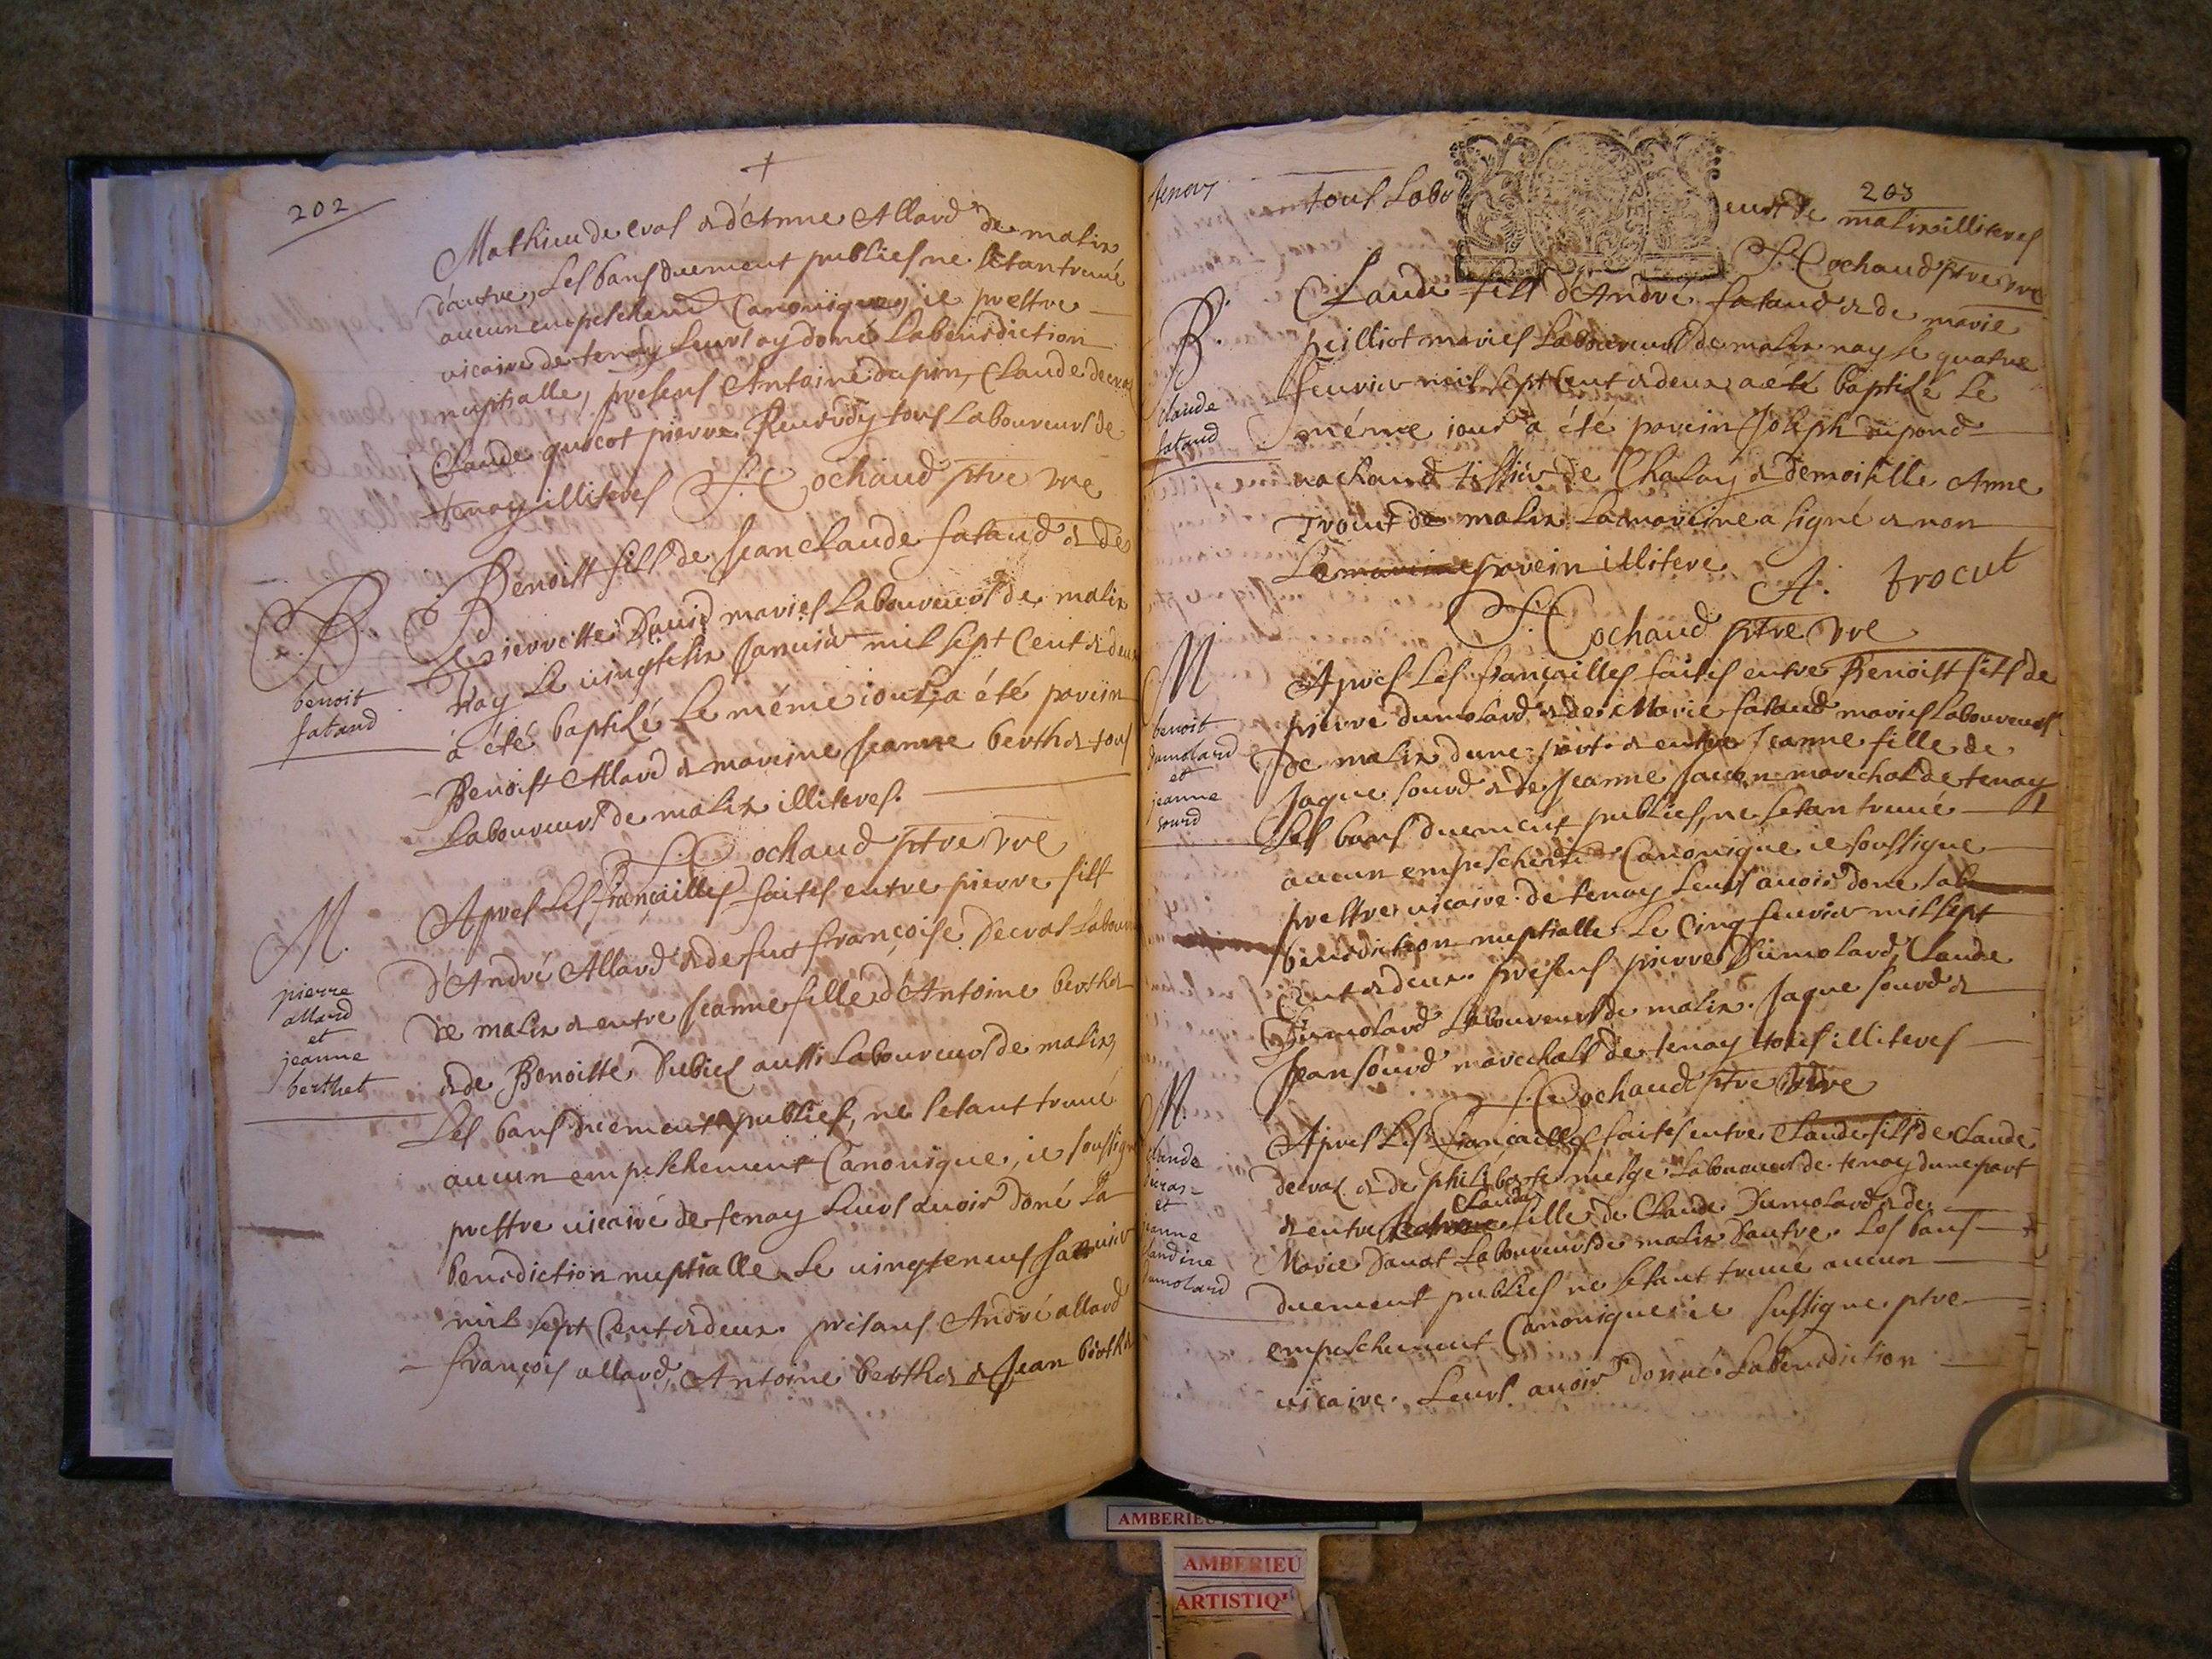 202
Mathieu decras & d'Anne Allard de malix
d'autre, Les bans duement publies ne s'etan trouué
aucun empeschem^t Canonique, ie prestre
vicaire de tenay leurs ay doné La benediction
nuptialle, presens Antoine dupin, Claude decras
Claude quicot pierre Reuerdy tous Laboureurs de
tenay illiteres S. Cochaud ptre vre
B.
benoit
fataud
Benoist fils de Jean Claude fataud & de
Pierrette Dauid maries Laboureurs de malix
nay Le uingtsix Januier mil sept Cent & deux
a été baptisé Le méme iour, a été parein
Benoist Allard & mareine Jeanne berthet tous
Laboureurs de malix illiteres.
S. Cochaud ptre vre
M.
pierre
allard
et
jeanne
berthet
Apres Les fiançailles faites entre pierre fils
d'André Allard & de fut françoise Decras Labour
de malix & entre Jeanne fille d'Antoine berthet
& de Benoitte Dubiel aussi Laboureurs de malix,
Les bans duement publies, ne s'etant trouué
aucun empeschement Canonique, ie soussigné
prestre uicaire de tenay Leurs auoir doné La
benediction nuptialle Le uingtneuf Januier
mil sept Cent & deux. presans André allard
françois allard, Antoine berthet & Jean berthet
tenay
203
tous Labo eurs de malix illiteres
S. Cochaud ptre vre
B.
claude
fataud
Claude fils d'André fataud & de marie
peilliot maries Laboureurs de malix nay le quatre
feurier mil sept Cent & deux a eté baptisé Le
méme iour a été parein Joseph dupond
marchand tissier de Chaley & demoiselle Anne
Trocut de malix La mareine a signé & non
Le parein illitere
A. trocut
S. Cochaud ptre vre
M
benoit
dumolard
et
jeanne
sourd
Apres Les fiançailles faites entre Benoist fils de
pierre dumolard & de Marie fataud maries Laboureurs
de malix d'une part & entre Jeanne fille de
Jaque sourd & de Jeanne marechal de tenay
Les bans duement publies, ne s'etan trouué
aucun empeschem^t Canonique ie soussigné
prestre uicaire de tenay Leurs auoir doné la
benediction nuptialle Le Cinq feurier mil sept
Cent & deux. presens pierre Dumolard, Claude
Dumolard Laboureurs de malix. Jaque sourd &
Jean sourd marechals de tenay tous illiteres
S. Cochaud ptre vre
M.
claude
decras
et
jeanne
claudine
dumolard
Apres Les fiançailles faites entre Claude fils de Claude
decras & de philiberte mesge Laboureurs de tenay d'une part
& entre Claudine fille de Claude Dumolard & de
Marie Danat Laboureurs de malix d'autre. Les bans
duement publies ne s'etant trouué aucun
empeschement Canonique ie sussigné ptre
uicaire. Leurs auoir donné La benediction
AMBERIEU
AMBERIEU
ARTISTIQU